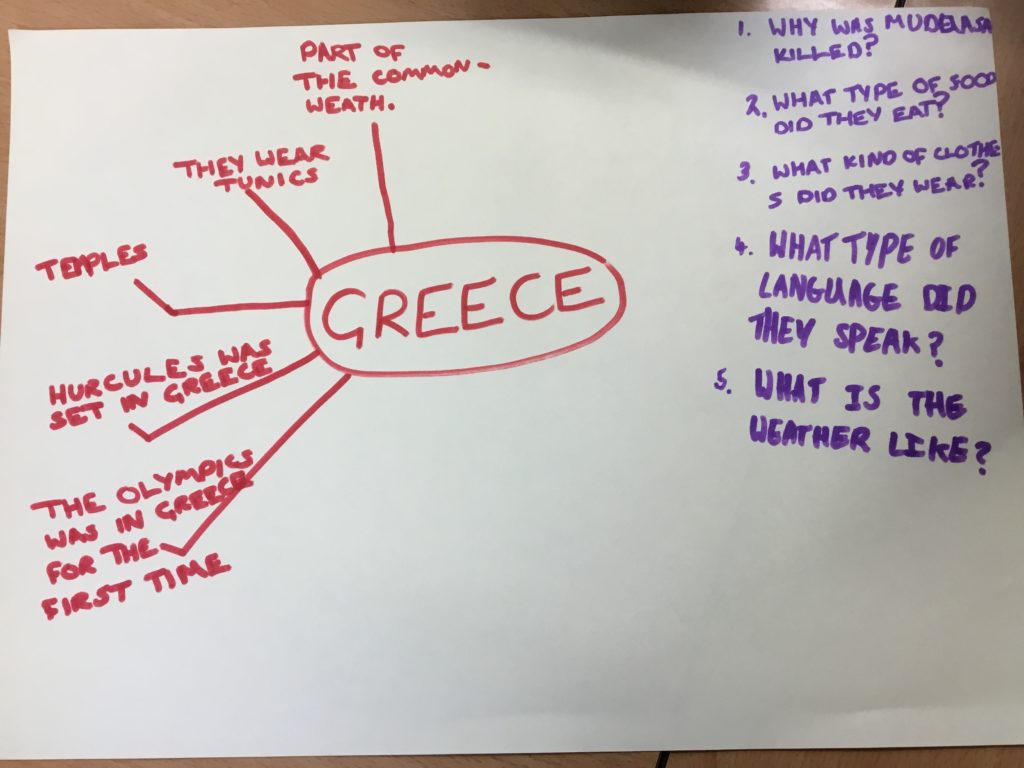 PART OF
THE COMMON-
WEATH.
THEY WEAR
TUNICS
TEMPLES
GREECE
HURCULES WAS
SET IN GREECE
THE OLYMPICS
WAS IN GREECE
FOR THE
FIRST TIME
1. WHY WAS
KILLED?
2. WHAT TYPE OF FOOD
DID THEY EAT?
3. WHAT KIND OF CLOTHE
S DID THEY WEAR?
4. WHAT TYPE OF
LANGUAGE DID
THEY SPEAK?
5. WHAT IS THE
WEATHER LIKE?